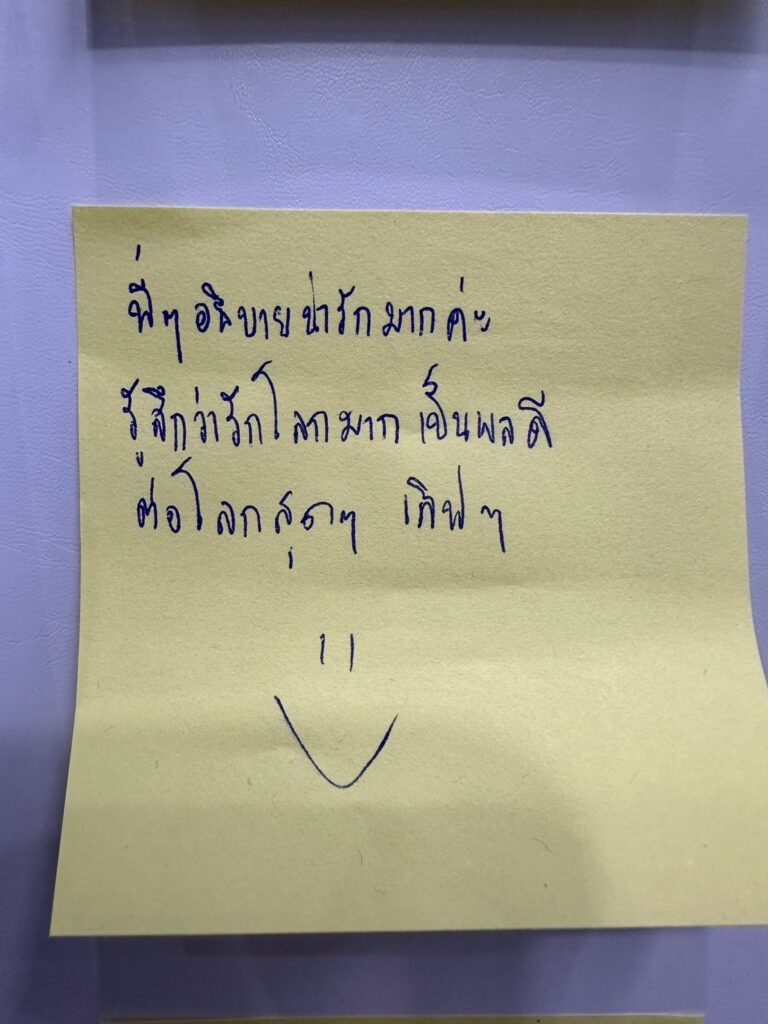 พี่ๆอธิบายน่ารักมากค่ะ
รู้สึกว่ารักโลกมาก เป็นผลดี
ต่อโลกสุดๆ เลิฟๆ